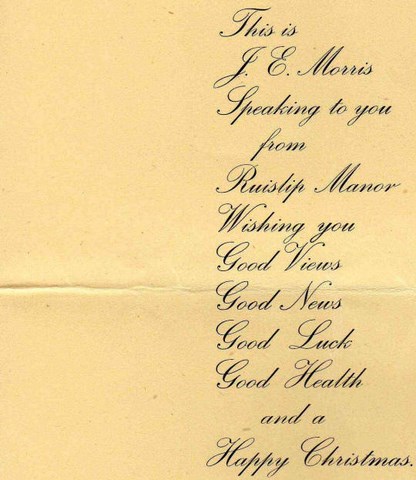 This is
J. E. Morris
Speaking to you
from
Ruislip Manor
Wishing you
Good Views
Good News
Good Luck
Good Health
and a
Happy Christmas.